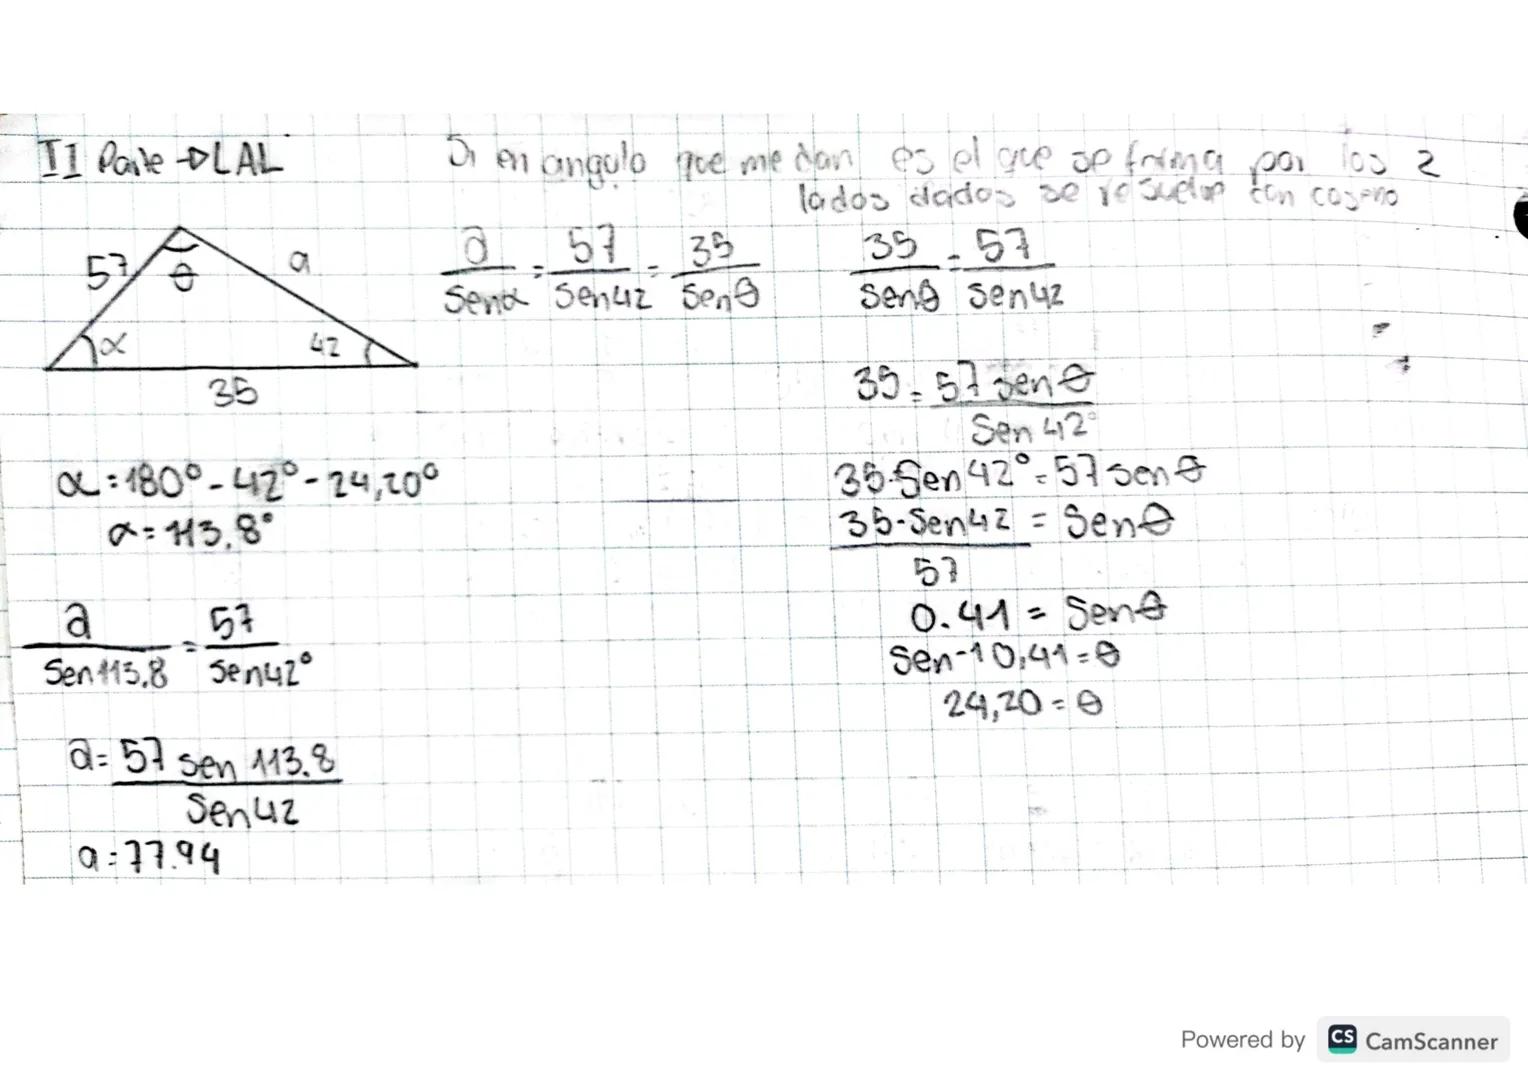 II Parte → LAL
Si en angulo que me dan es el que se forma por los 2
lados dados se resuelve con coseno
57
θ
a
α
42
35
a/Senα = 57/Sen42 = 35/Senθ
35/Senθ = 57/Sen42
35 = 57 senθ/Sen 42°
35·Sen42° = 57 senθ
35·Sen42/57 = Senθ
0.41 = Senθ
Sen-1 0,41 = θ
24,20 = θ
α = 180° - 42° - 24,20°
α = 113,8°
a/Sen113,8 = 57/Sen42°
a = 57 sen 113.8/Sen42
a = 77.94
Powered by CS CamScanner